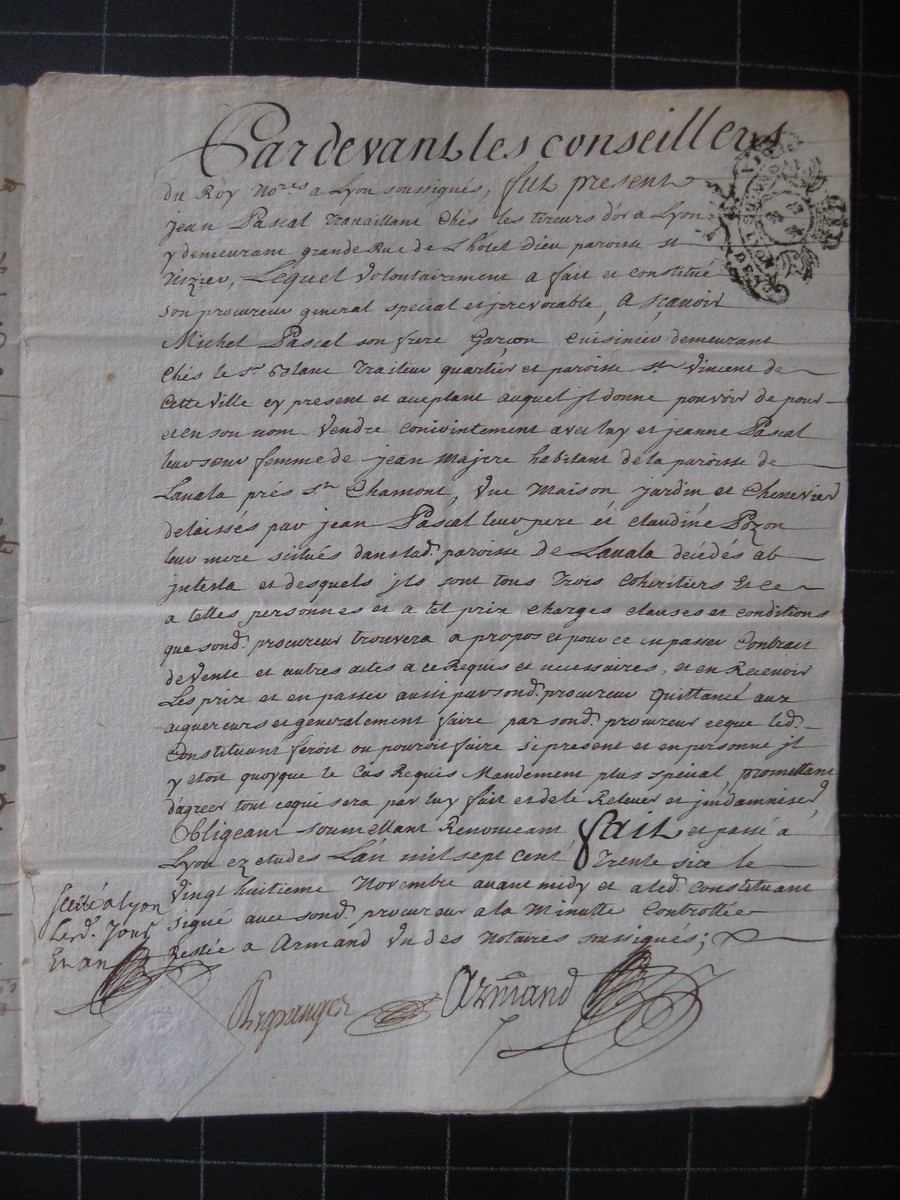 Pardevant les conseillers
du Roy No.res a Lyon soussignés, fut present
jean Pascal travaillant chés les tireurs d'or a Lyon
y demeurant grande Rue de L'hotel Dieu paroisse st
Nizier, Lequel volontairement a fait et constitué
son procureur general special et jrrevocable, a sçavoir
Michel Pascal son frere Garçon cuisinier demeurant
chés le sr. traiteur quartier et paroisse st Vincent de
cette ville cy present et aceptant auquel jl donne pouvoir de pour
et en son nom vendre conjointement avec luy et jeanne Pascal
leur sœur femme de jean Majere habitant de la paroisse de
Lavala prés St. Chamont, une Maison jardin et Chenevier
delaissés par jean Pascal leur pere et claudine Pozon
leur mere situés dans lad. paroisse de Lavala decédés ab
jntesta et desquels jls sont tous trois coheritiers Et ce
a telles personnes et a tel prix charges clauses et conditions
que sond. procureur trouvera a propos et pour ce en passer contract
de vente et autres actes a ce Requis et necessaires, et en Recevoir
Les prix et en passer aussi par sond. procureur quittance aux
aquereurs et generalement faire par sond. procureur ce que led.
Constituant feroit ou pouroit faire si present et en personne jl
y etoit quoyque le Cas Requis Mandement plus special, promettant
d'agreer tout ce qui sera par luy fait et de le Relever et jndamniser
Obligeant soumettant Renonceant fait et passé a
Lyon ez etudes L'an mil sept cent trente six le
vingt huitieme Novembre avant midy et a led. constituant
signé avec sond. procureur a la Minutte Controllée
Restée a Armand un des Notaires soussignés;
Scellé a Lyon
Lesd. Jour
Et an
Armand